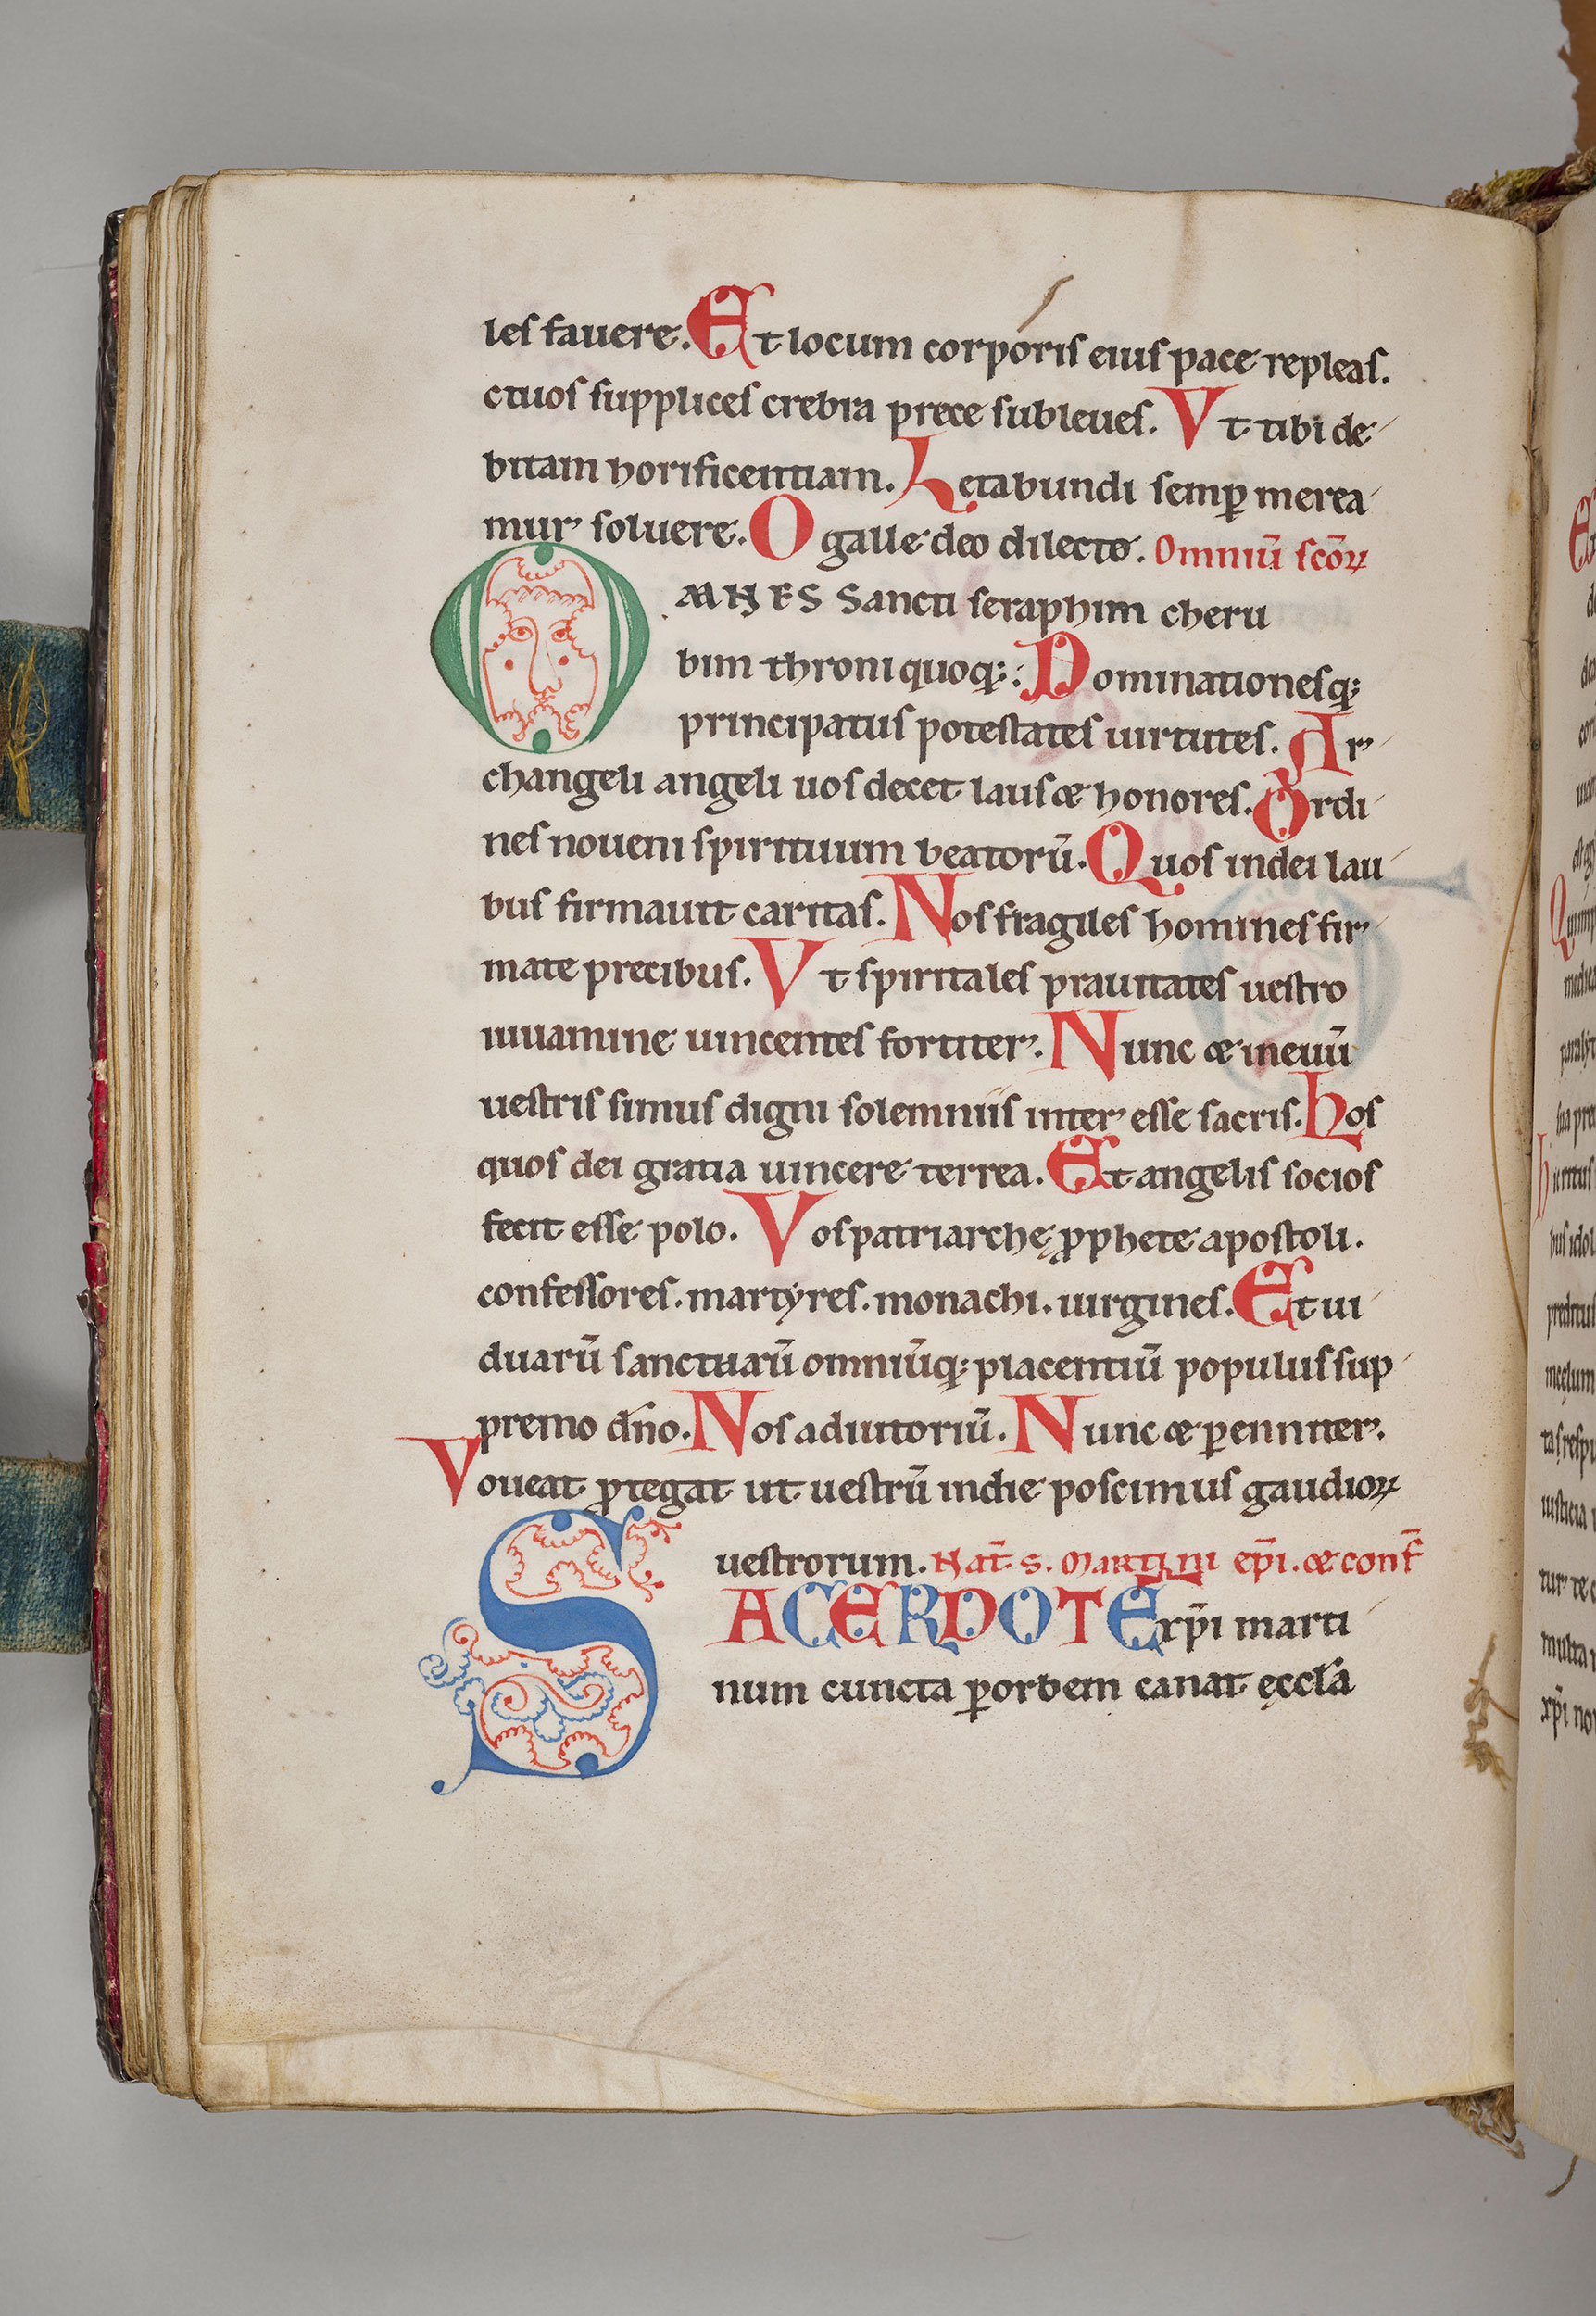 leſ fauere. Et locum corporiſ eiuſ pace repleaſ.
ctuoſ ſuppliceſ crebra prece ſubleueſ. Vt tibi de
bitam horificentiam. Letabundi semp̲ merea
mur ſoluere. O galle deo dilecte. Omniū ſcōꝝ
OMNES Sancti ſeraphim cheru
bim throni quoq;. Dominationeſq;
principatuſ poteſtateſ uirtuteſ. Ar
changeli angeli uoſ decet lauſ & honoreſ. Ordi
neſ noueni ſpirituum beatorū. Quoſ in dei lau
buſ firmauit caritaſ. Noſ fragileſ homineſ fir
mate precibuſ. Vt ſpiritaleſ prauitateſ ueſtro
iuuamine uincenteſ fortiter. Nunc & in euū
ueſtriſ ſimuſ digni ſolemniiſ inter eſſe ſacriſ. Hoſ
quoſ dei gratia uincere terrea. Et angeliſ ſocioſ
fecit eſſe polo. Voſ patriarchę ꝓphete apoſtoli.
confeſſoreſ. martyreſ. monachi. uirgineſ. Et ui
duarū ſanctuarū omniūq; placentiū populuſ ſup
premo dn̄o. Noſ adiutoriū. Nunc & ꝑenniter.
Voueat ꝓtegat ut ueſtrū in die poſcimuſ gaudioꝝ
ueſtrorum. Nat̄ S. Martini ep̄i. & conf̄
SACERDOTE xp̄i marti
num cuncta ꝑ orbem canat ęccl̄a